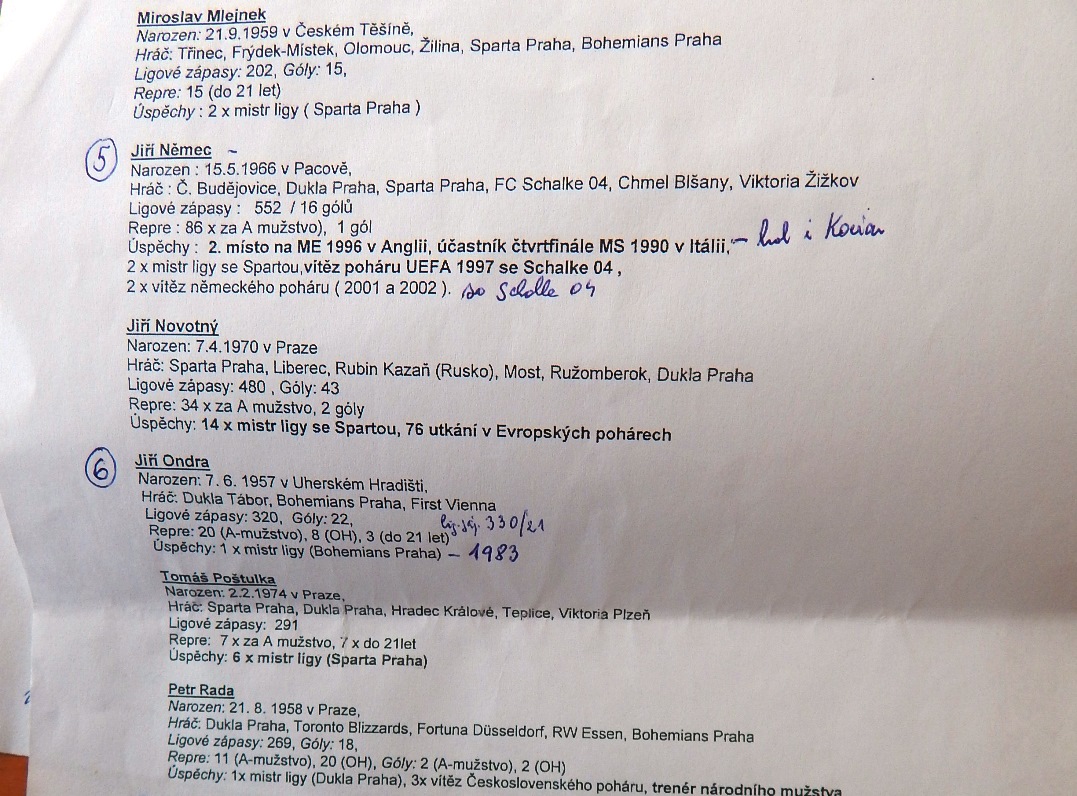 Miroslav Mlejnek
Narozen: 21.9.1959 v Českém Těšíně,
Hráč: Třinec, Frýdek-Místek, Olomouc, Žilina, Sparta Praha, Bohemians Praha
Ligové zápasy: 202, Góly: 15,
Repre: 15 (do 21 let)
Úspěchy : 2 x mistr ligy ( Sparta Praha )
5 Jiří Němec –
Narozen : 15.5.1966 v Pacově,
Hráč : Č. Budějovice, Dukla Praha, Sparta Praha, FC Schalke 04, Chmel Blšany, Viktoria Žižkov
Ligové zápasy : 552 / 16 gólů
Repre : 86 x za A mužstvo), 1 gól
Úspěchy : 2. místo na ME 1996 v Anglii, účastník čtvrtfinále MS 1990 v Itálii, – hrál i
2 x mistr ligy se Spartou,vítěz poháru UEFA 1997 se Schalke 04 ,
2 x vítěz německého poháru ( 2001 a 2002 ). so Schalke 04
Jiří Novotný
Narozen: 7.4.1970 v Praze
Hráč: Sparta Praha, Liberec, Rubin Kazaň (Rusko), Most, Ružomberok, Dukla Praha
Ligové zápasy: 480 , Góly: 43
Repre: 34 x za A mužstvo, 2 góly
Úspěchy: 14 x mistr ligy se Spartou, 76 utkání v Evropských pohárech
6 Jiří Ondra
Narozen: 7. 6. 1957 v Uherském Hradišti,
Hráč: Dukla Tábor, Bohemians Praha, First Vienna
Ligové zápasy: 320, Góly: 22, 330/21
Repre: 20 (A-mužstvo), 8 (OH), 3 (do 21 let)
Úspěchy: 1 x mistr ligy (Bohemians Praha) – 1983
Tomáš Poštulka
Narozen: 2.2.1974 v Praze,
Hráč: Sparta Praha, Dukla Praha, Hradec Králové, Teplice, Viktoria Plzeň
Ligové zápasy: 291
Repre: 7 x za A mužstvo, 7 x do 21let
Úspěchy: 6 x mistr ligy (Sparta Praha)
Petr Rada
Narozen: 21. 8. 1958 v Praze,
Hráč: Dukla Praha, Toronto Blizzards, Fortuna Düsseldorf, RW Essen, Bohemians Praha
Ligové zápasy: 269, Góly: 18,
Repre: 11 (A-mužstvo), 20 (OH), Góly: 2 (A-mužstvo), 2 (OH)
Úspěchy: 1x mistr ligy (Dukla Praha), 3x vítěz Československého poháru, trenér národního mužstva